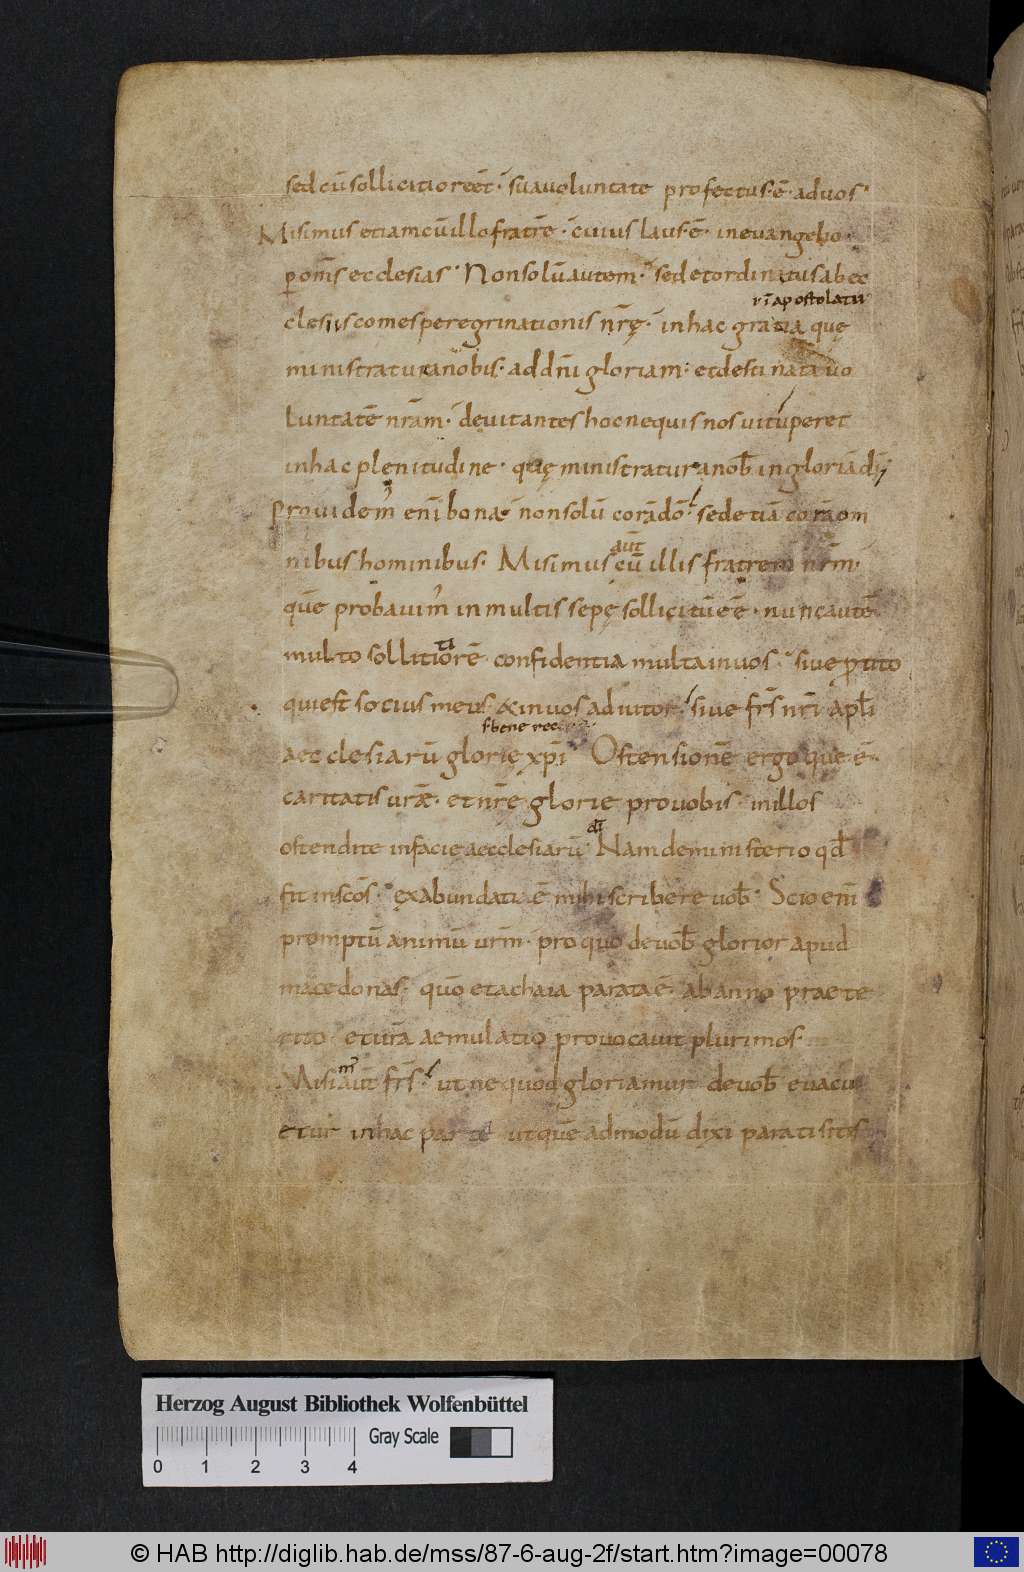 sed cū sollicitior eēt · sua voluntate profectus · ē · ad vos ·
Misimus etiam cū illo fratrē · cuius laus · ē · in evangelio ·
p om̄s ecclesias · Non solū autem · sed et ordinatus ab ec
ri apostolatu
clesiis comes peregrinationis nr̄ę · in hac gratia quę
ministratur a nobis · ad dn̄i gloriam · et destinata vo
luntatē nr̄am · devitantes hoc ne quis nos vituperet
in hac plenitudine · quę ministratur a nob̄ in gloriā dī
Providem̄ enī bona · non solū corā dō · sed etiā corā om
aūt
nibus hominibus · Misimus cū illis fratrem nr̄m ·
quē probavim̄ in multis sepę sollicitū eē · nunc autē
ti
multo sollitiorē confidentia multa in vos · sive p tito
qui est socius meus & in vos adiutor · sive fr̄s nr̄i apl̄i
aecclesiarū glorię xp̄i Ostensionē ergo que · ē ·
caritatis vr̄æ · et nr̄e glorie pro vobis · in illos
ostendite in facie aecclesiarū Nam de ministerio qd̄
fit in sc̄os · ex abundati ē mihi scribere vob̄ · Scio enī
promptū animū vr̄m · pro quo de vob̄ glorior apud
macedonas · quō et achaia parata ē · ab anno praete
rito et vr̄a aemulatio provocavit plurimos
Misi aūt fr̄s · ut ne quod gloriamur de vob̄ evacu
etur in hac parte ut quē admodū dixi parati sitis
Herzog August Bibliothek Wolfenbüttel
Gray Scale
0 1 2 3 4
© HAB http://diglib.hab.de/mss/87-6-aug-2f/start.htm?image=00078